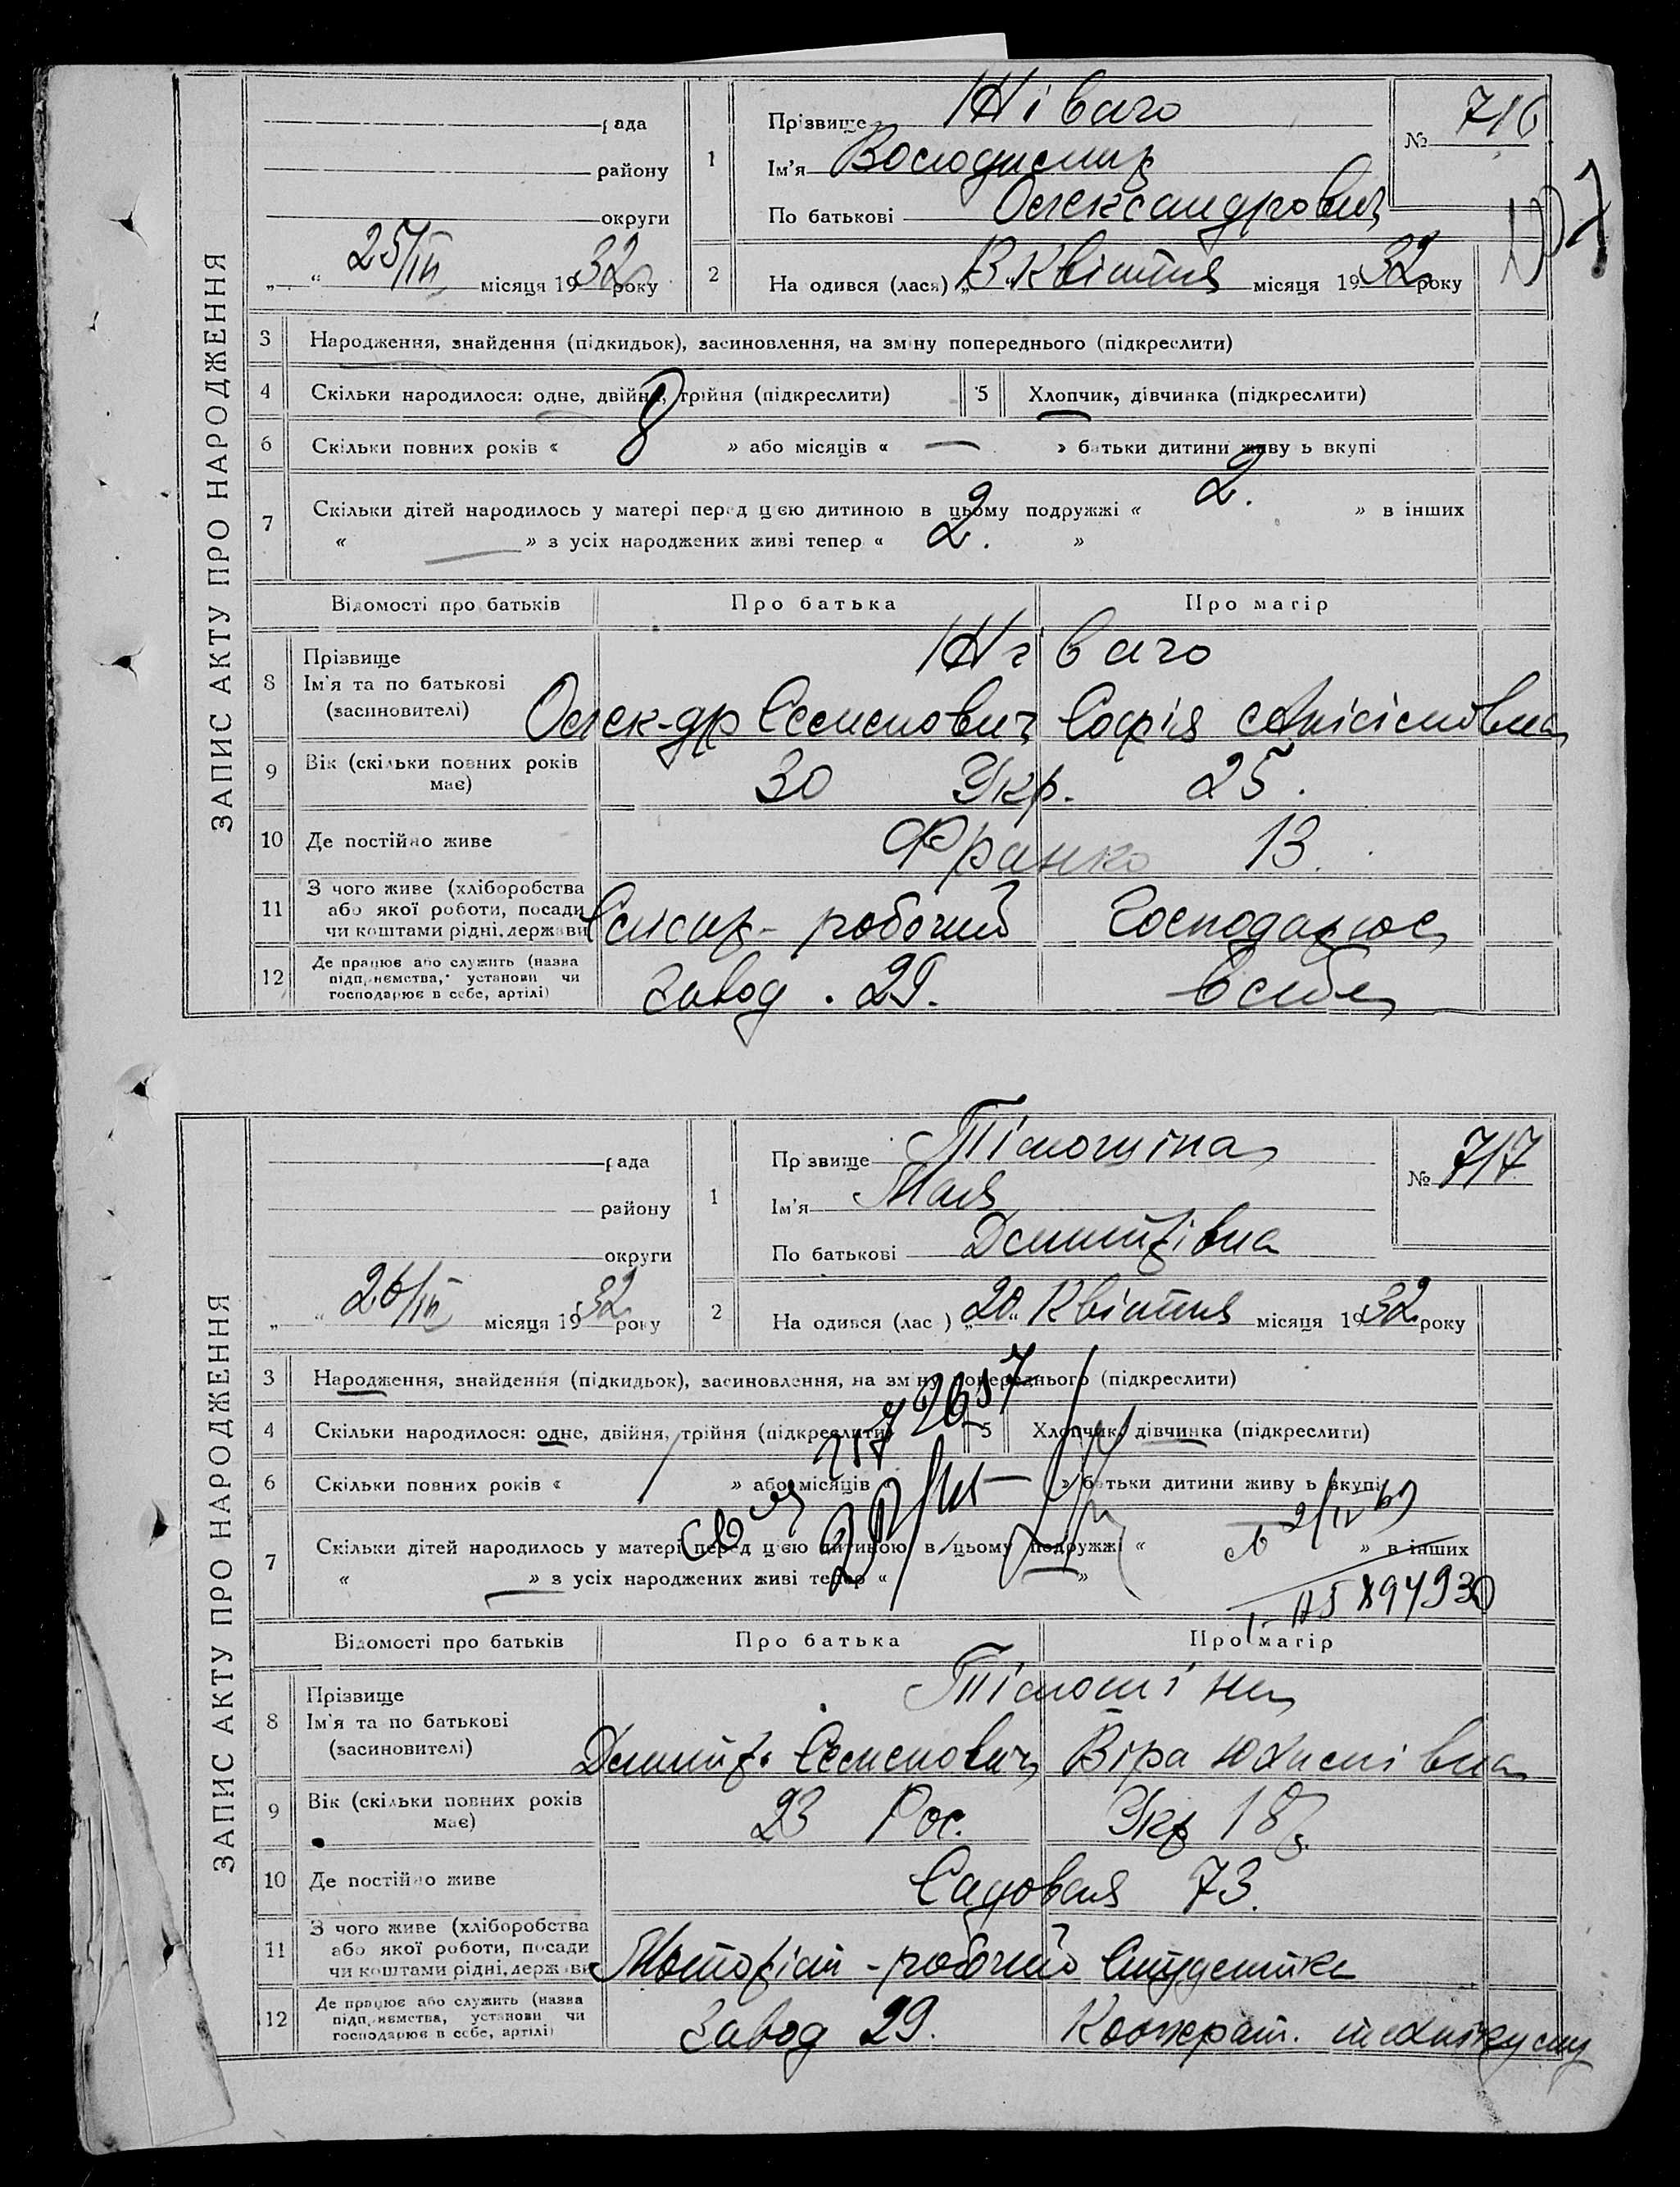 ЗАПИС АКТУ ПРО НАРОДЖЕННЯ
рада
району
округи
„ “ 25/IV місяця 1932 року
1
Прізвище Жіваго
Ім'я Володимир
По батькові Олександрович
№ 716
2
На одився (лася) „13“ Квітня місяця 1932 року
3 Народження, знайдення (підкидьок), засиновлення, на зміну попереднього (підкреслити)
4 Скільки народилося: одне, двійня, трійня (підкреслити)
5 Хлопчик, дівчинка (підкреслити)
6 Скільки повних років « 8 » або місяців « — » батьки дитини живу ь вкупі
7 Скільки дітей народилось у матері перед цією дитиною в цьому подружжі « 2. » в інших
« — » з усіх народжених живі тепер « 2. »
Відомості про батьків Про батька Про матір
8 Прізвище
Ім'я та по батькові
(засиновителі)
Жіваго
Олек-др Семенович Софія Анісімовна
9 Вік (скільки повних років має)
30 Укр. 25.
10 Де постійно живе
Франко 13.
11 З чого живе (хліборобства
або якої роботи, посади
чи коштами рідні, держави
Слюсар - робочий Господарює
12 Де працює або служить (назва
підприємства, установи чи
господарює в себе, артілі)
Завод . 29. в себе
ЗАПИС АКТУ ПРО НАРОДЖЕННЯ
рада
району
округи
„ “ 26/IV місяця 1932 року
1
Пр звище Тімошіна
Ім'я Мая
По батькові Дмитрівна
№ 717
2
На одився (лас ) „20“ Квітня місяця 1932 року
3 Народження, знайдення (підкидьок), засиновлення, на зміну попереднього (підкреслити)
4 Скільки народилося: одне, двійня, трійня (підкреслити)
5 Хлопчик, дівчинка (підкреслити)
6 Скільки повних років « 1 » або місяців « — » батьки дитини живу ь вкупі
7 Скільки дітей народилось у матері перед цією дитиною в цьому подружжі « » в інших
« — » з усіх народжених живі тепер « — »
894930
Відомості про батьків Про батька Про матір
8 Прізвище
Ім'я та по батькові
(засиновителі)
Тімошіни
Дмитр. Семенович Віра Юхимівна
9 Вік (скільки повних років має)
23 Рос. Укр 18 р.
10 Де постійно живе
Садовая 73.
11 З чого живе (хліборобства
або якої роботи, посади
чи коштами рідні, держави
Моторіст - робочий Студентка
12 Де працює або служить (назва
підприємства, установи чи
господарює в себе, артілі)
Завод 29. Кооперат. технікуму